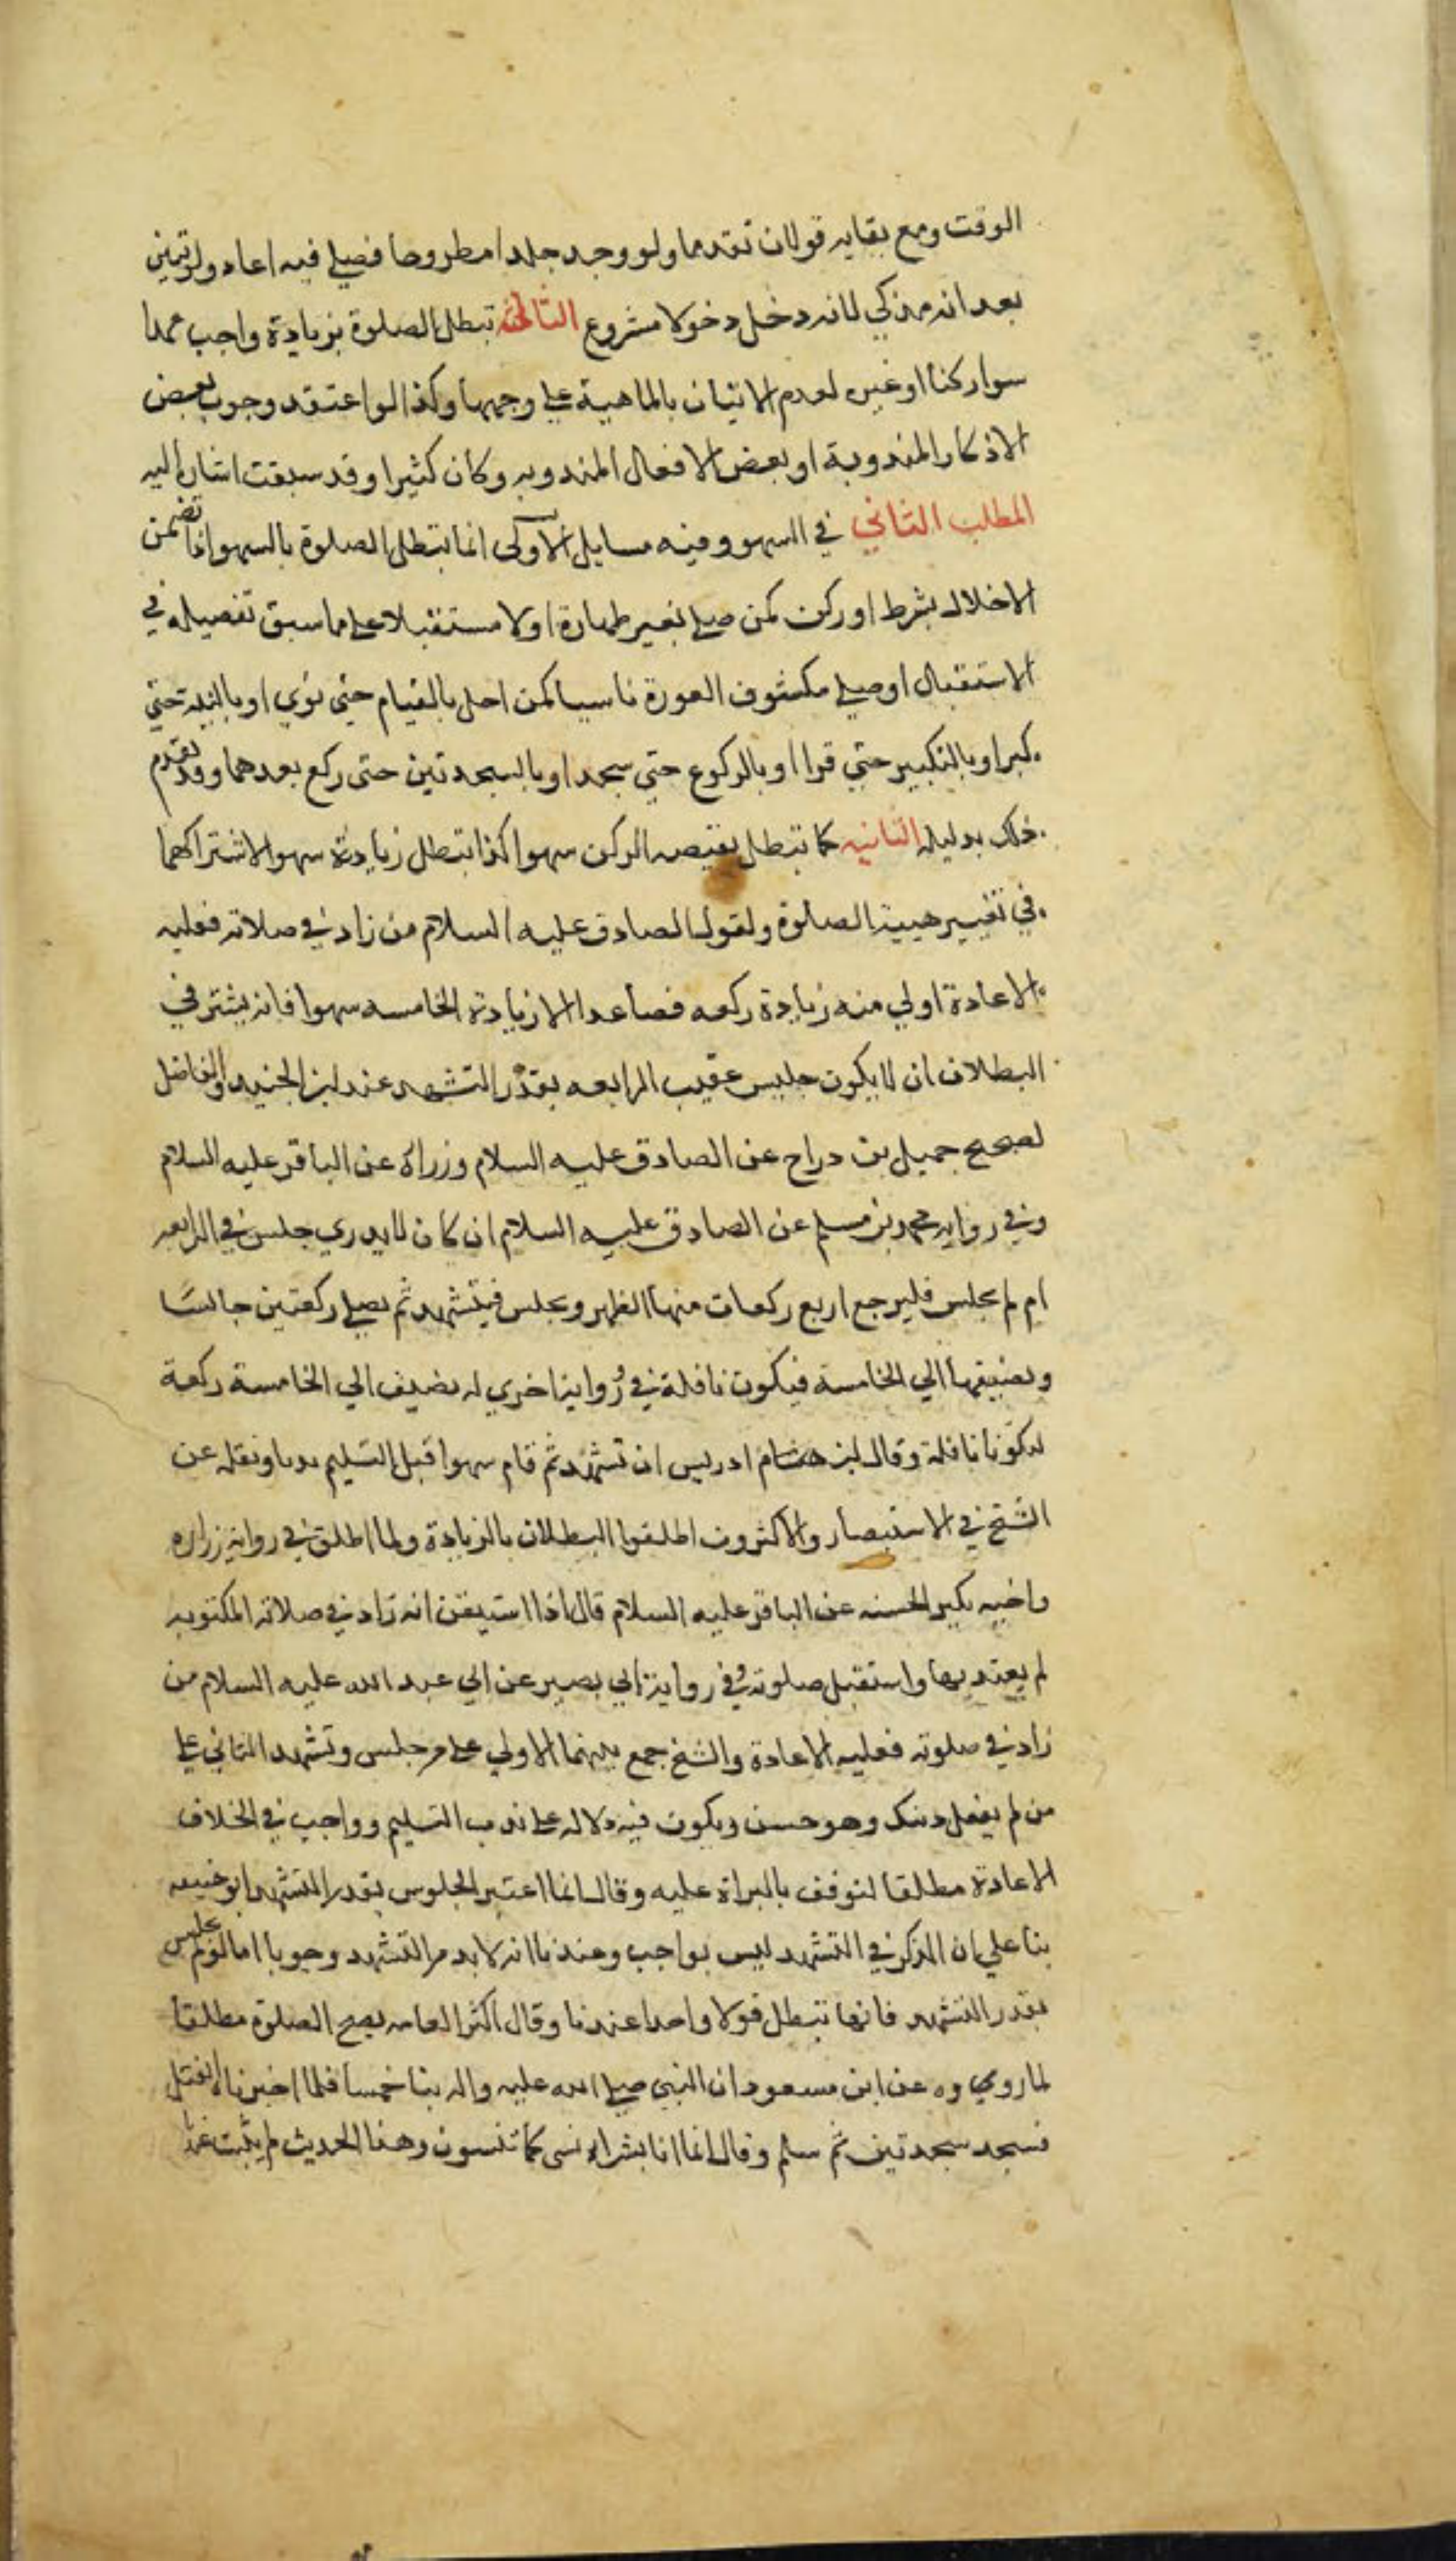 الوقت ومع بقايه قولان تقدما ولو وجد جلدا مطروحا فصلي فيه اعاد ولو تبين
بعد انه مذكي لانه دخل دخولا مشروع الثالثة تبطل الصلوة بزيادة واجب عمدا
سوا ركنا او غيره لعدم الاتيان بالماهية علي وجهها وكذا لو اعتقد وجوب بعض
الاذكار المندوبة او بعض الافعال المندوبه وكان كثيرا وقد سبقت اشارة اليه
المطلب الثاني في السهو وفيه مسايل الاولى انما تبطل الصلوة بالسهو اذا تضمن
الاخلال بشرط او ركن كمن صلي بغير طهارة او لا مستقبلا علي ما سبق تفصيله في
الاستقبال او صلي مكشوف العورة ناسيا كمن اخل بالقيام حتي نوي او بالنية حتي
كبر او بالتكبير حتي قرا او بالركوع حتي سجد او بالسجدتين حتى ركع بعدهما وقد تقدم
ذلك بدليله الثانيه كما تبطل بنقيصه الركن سهوا كذا تبطل زيادته سهوا لاشتراكهما
في تغيير هيية الصلوة ولقول الصادق عليه السلام من زاد في صلاته فعليه
الاعادة اولي منه زيادة ركعه فصاعدا الا زيادة الخامسه سهوا فانه يشترط في
البطلان ان لا يكون جلس عقيب الرابعه بقدر التشهد عند ابن الجنيد والفاضل
لصحيح جميل بن دراج عن الصادق عليه السلام وزراة عن الباقر عليه السلام
وفي روايه محمد بن مسلم عن الصادق عليه السلام ان كان لا يدري جلس في الرابعه
ام لم يجلس فليرجع اربع ركعات منها الظهر ويجلس فيتشهد ثم يصلي ركعتين جالسًا
ويضيفها الي الخامسة فيكون نافلة في رواية اخري له يضيف الي الخامسة ركعة
لتكونا نافلة وقال ابن ادريس ان تشهد ثم قام سهوا قبل التسليم ونقله عن
الشيخ في الاستبصار والاكثرون اطلقوا البطلان بالزيادة ولما اطلق في رواية زراره
واخيه بكير الحسنه عن الباقر عليه السلام قال اذا استيقن انه زاد في صلاته المكتوبه
لم يعتد بها واستقبل صلوته وفي رواية ابي بصير عن ابي عبد الله عليه السلام من
زاد في صلوته فعليه الاعادة والشيخ جمع بينهما الاولي علي من جلس وتشهد الثاني علي
من لم يفعل ذلك وهو حسن ويكون فيه دلاله علي ندب التسليم وواجب في الخلاف
الاعادة مطلقا لتوقف بالبراة عليه وقال انما اعتبر الجلوس بقدر التشهد ابو حنيفه
بنا علي ان الذكر في التشهد ليس بواجب وعندنا انه لا بد من التشهد وجوبا اما لو لم يجلس
بقدر التشهد فانها تبطل قولا واحدا عندنا وقال اكثر العامه يصح الصلوة مطلقا
لما روي عن ابن مسعود ان النبي صلي الله عليه واله بنا خمسا فلما اخبرناه انفتل
فسجد سجدتين ثم سلم وقال انما انا بشر انسى كما تنسون وهذا الحديث لم يثبت عندنا